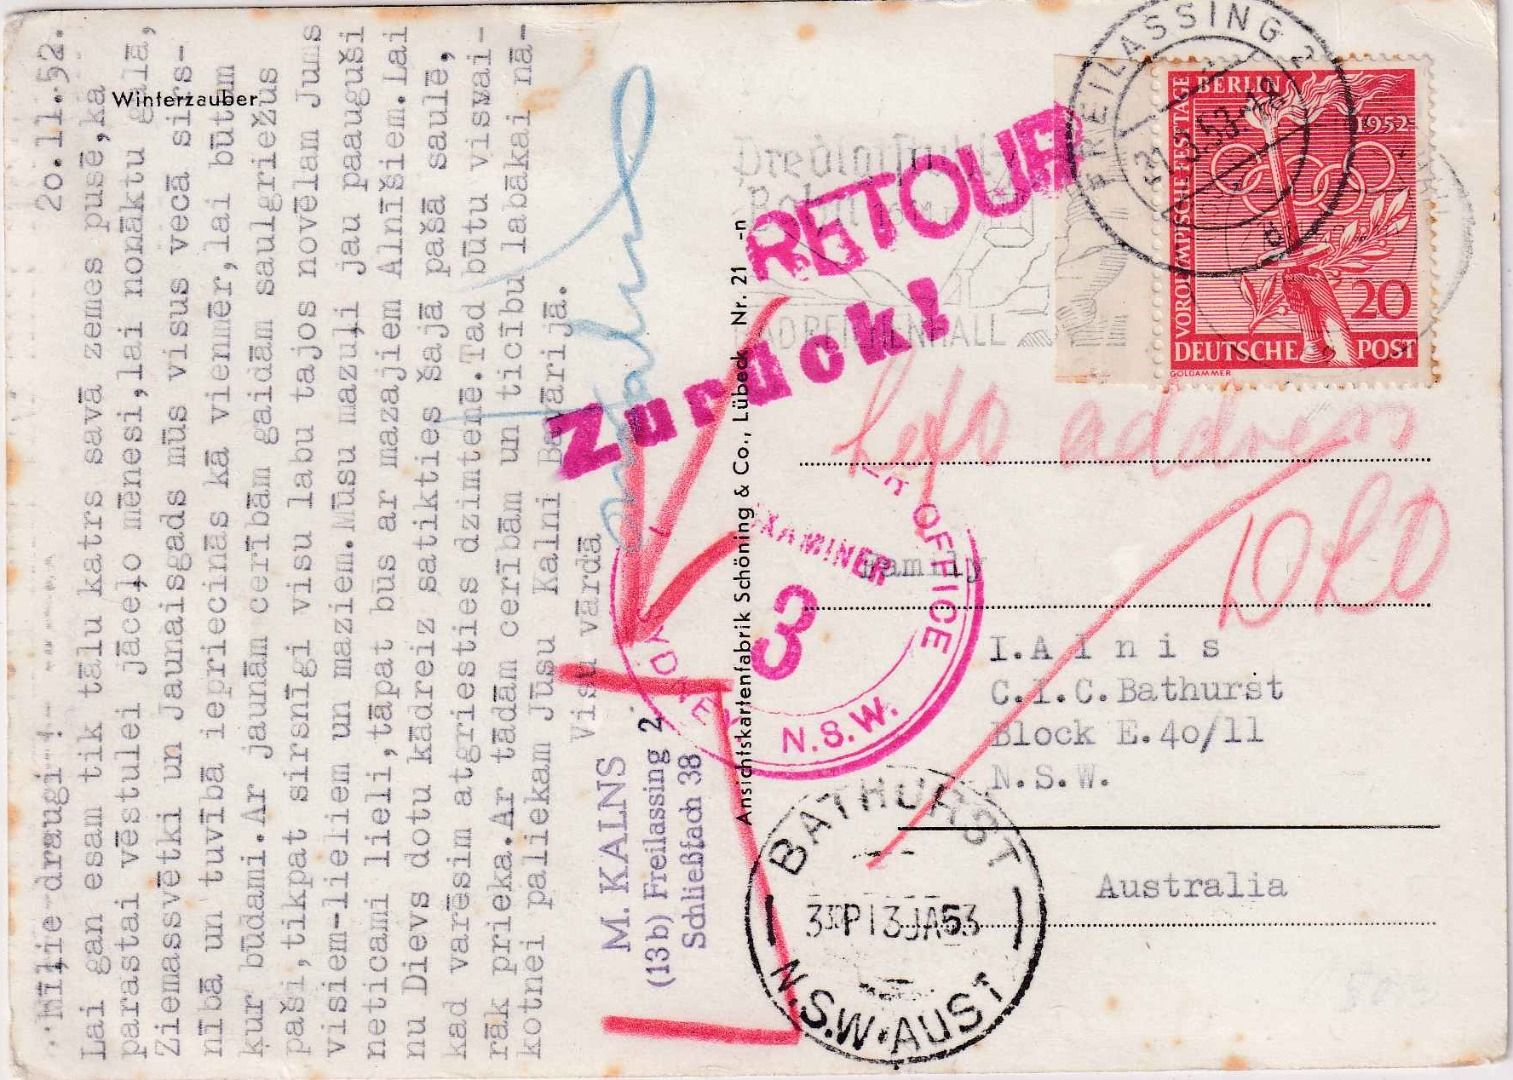 2o.11.52.
Winterzauber
Mīļie draugi!
Lai gan esam tik tālu katrs savā zemes pusē,ka
parastai vēstulei jāceļo mēnesi,lai nonāktu galā,
Ziemassvētki un Jaunaisgads mūs visus vecā sirs-
nībā un tuvībā iepriecinās kā vienmēr,lai būtam
kur būdami.Ar jaunām cerībām gaidām saulgriežus
paši,tikpat sirsnīgi visu labu tajos novēlam Jums
visiem-lieliem un maziem.Mūsu mazuļi jau paauguši
neticami lieli,tāpat būs ar mazajiem Alnīšiem.Lai
nu Dievs dotu kādreiz satikties šajā pašā saulē,
kad varēsim atgriesties dzimtenē.Tad būtu visvai-
rāk prieka.Ar tādām cerībām un ticību labākai nā-
kotnei paliekam Jūsu Kalni Bavārijā.
Visu vārdā
M. KALNS
(13b) Freilassing 2
Schließfach 38
Ansichtskartenfabrik Schöning & Co., Lübeck Nr. 21 -n
RETOUR
Zurück!
BAD REICHENHALL
FREILASSING 2
BERLIN
1952
VOROLYMPISCHE FESTTAGE
20
DEUTSCHE POST
GOLDAMMER
Left address
DLO
OFFICE
EXAMINER
3
SYDNEY
N.S.W.
Family
I.A l n i s
C.I.C.Bathurst
Block E.4o/11
N.S.W.
Australia
BATHURST
330P13JA53
N.S.W.AUST